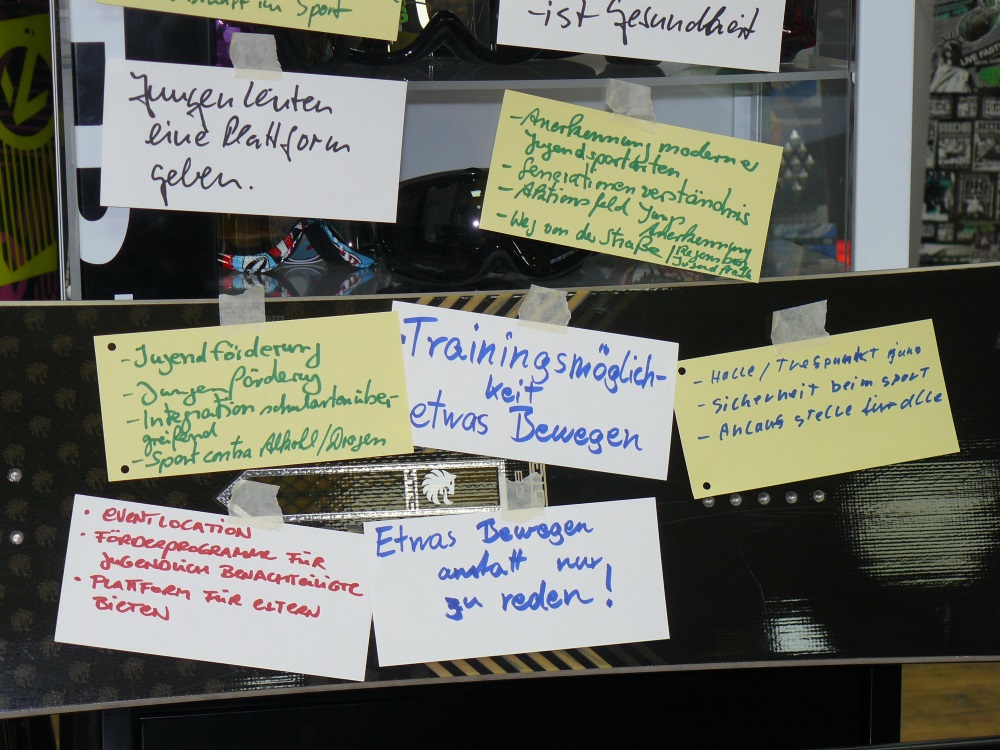 im Sport
-ist Gesundheit
Jungen Leuten
eine Plattform
geben.
- Anerkennung moderner
Jugendsportarten
- Generationenverständnis
- Aktionsfeld Jump
Anerkennung
- Weg von der Straße /
- Jugendförderung
- Jungenförderung
- Integration schulartenüber-
greifend
- Sport contra Alkohl/Drogen
- Trainingsmöglich-
keit
etwas Bewegen
- Halle / Treffpunkt
- Sicherheit beim Sport
- Anlaufstelle für alle
• EVENTLOCATION
• FÖRDERPROGRAMME FÜR
JUGENDLICH BENACHTEILIGTE
• PLATTFORM FÜR ELTERN
BIETEN
Etwas Bewegen
anstatt nur
zu reden!